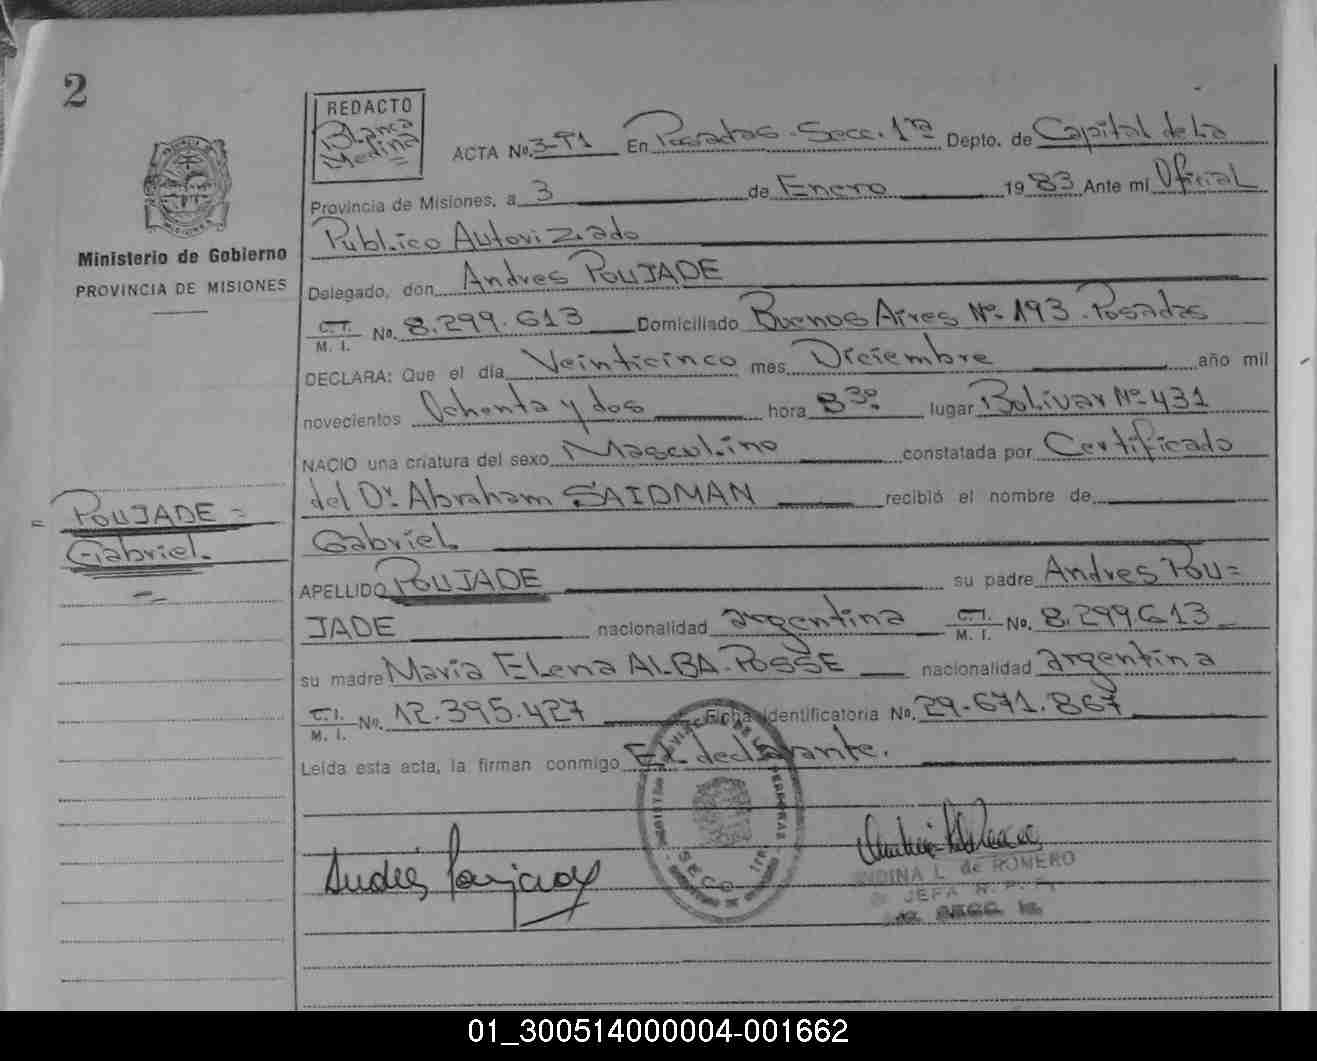 2
REDACTO
Blanca
Medina
ACTA No. 3-T1 En Posadas. Secc. 1ra Depto. de Capital de La
Provincia de Misiones, a 3 de Enero 1983 Ante mi Oficial
Público Autorizado
Ministerio de Gobierno
PROVINCIA DE MISIONES
Delegado, don Andres POUJADE
C.I. M. I. No. 8.299.613 Domiciliado Buenos Aires Nº 193. Posadas
DECLARA: Que el día Veinticinco mes Diciembre año mil
novecientos Ochenta y dos hora 8 30. lugar Bolívar Nº 431
NACIO una criatura del sexo Masculino constatada por Certificado
del Dr. Abraham SAIDMAN recibió el nombre de
= POUJADE =
Gabriel.
Gabriel
APELLIDO POUJADE su padre Andres POU=
JADE nacionalidad argentina C.I. M. I. No. 8.299.613
su madre Maria Elena ALBA-POSSE nacionalidad argentina
C.I. M. I. No. 12.395.427 Ficha Identificatoria No. 29.671.867
Leída esta acta, la firman conmigo El declarante.
SECC 1ra
L. de ROMERO
JEFA
SECC. 1a.
01_300514000004-001662